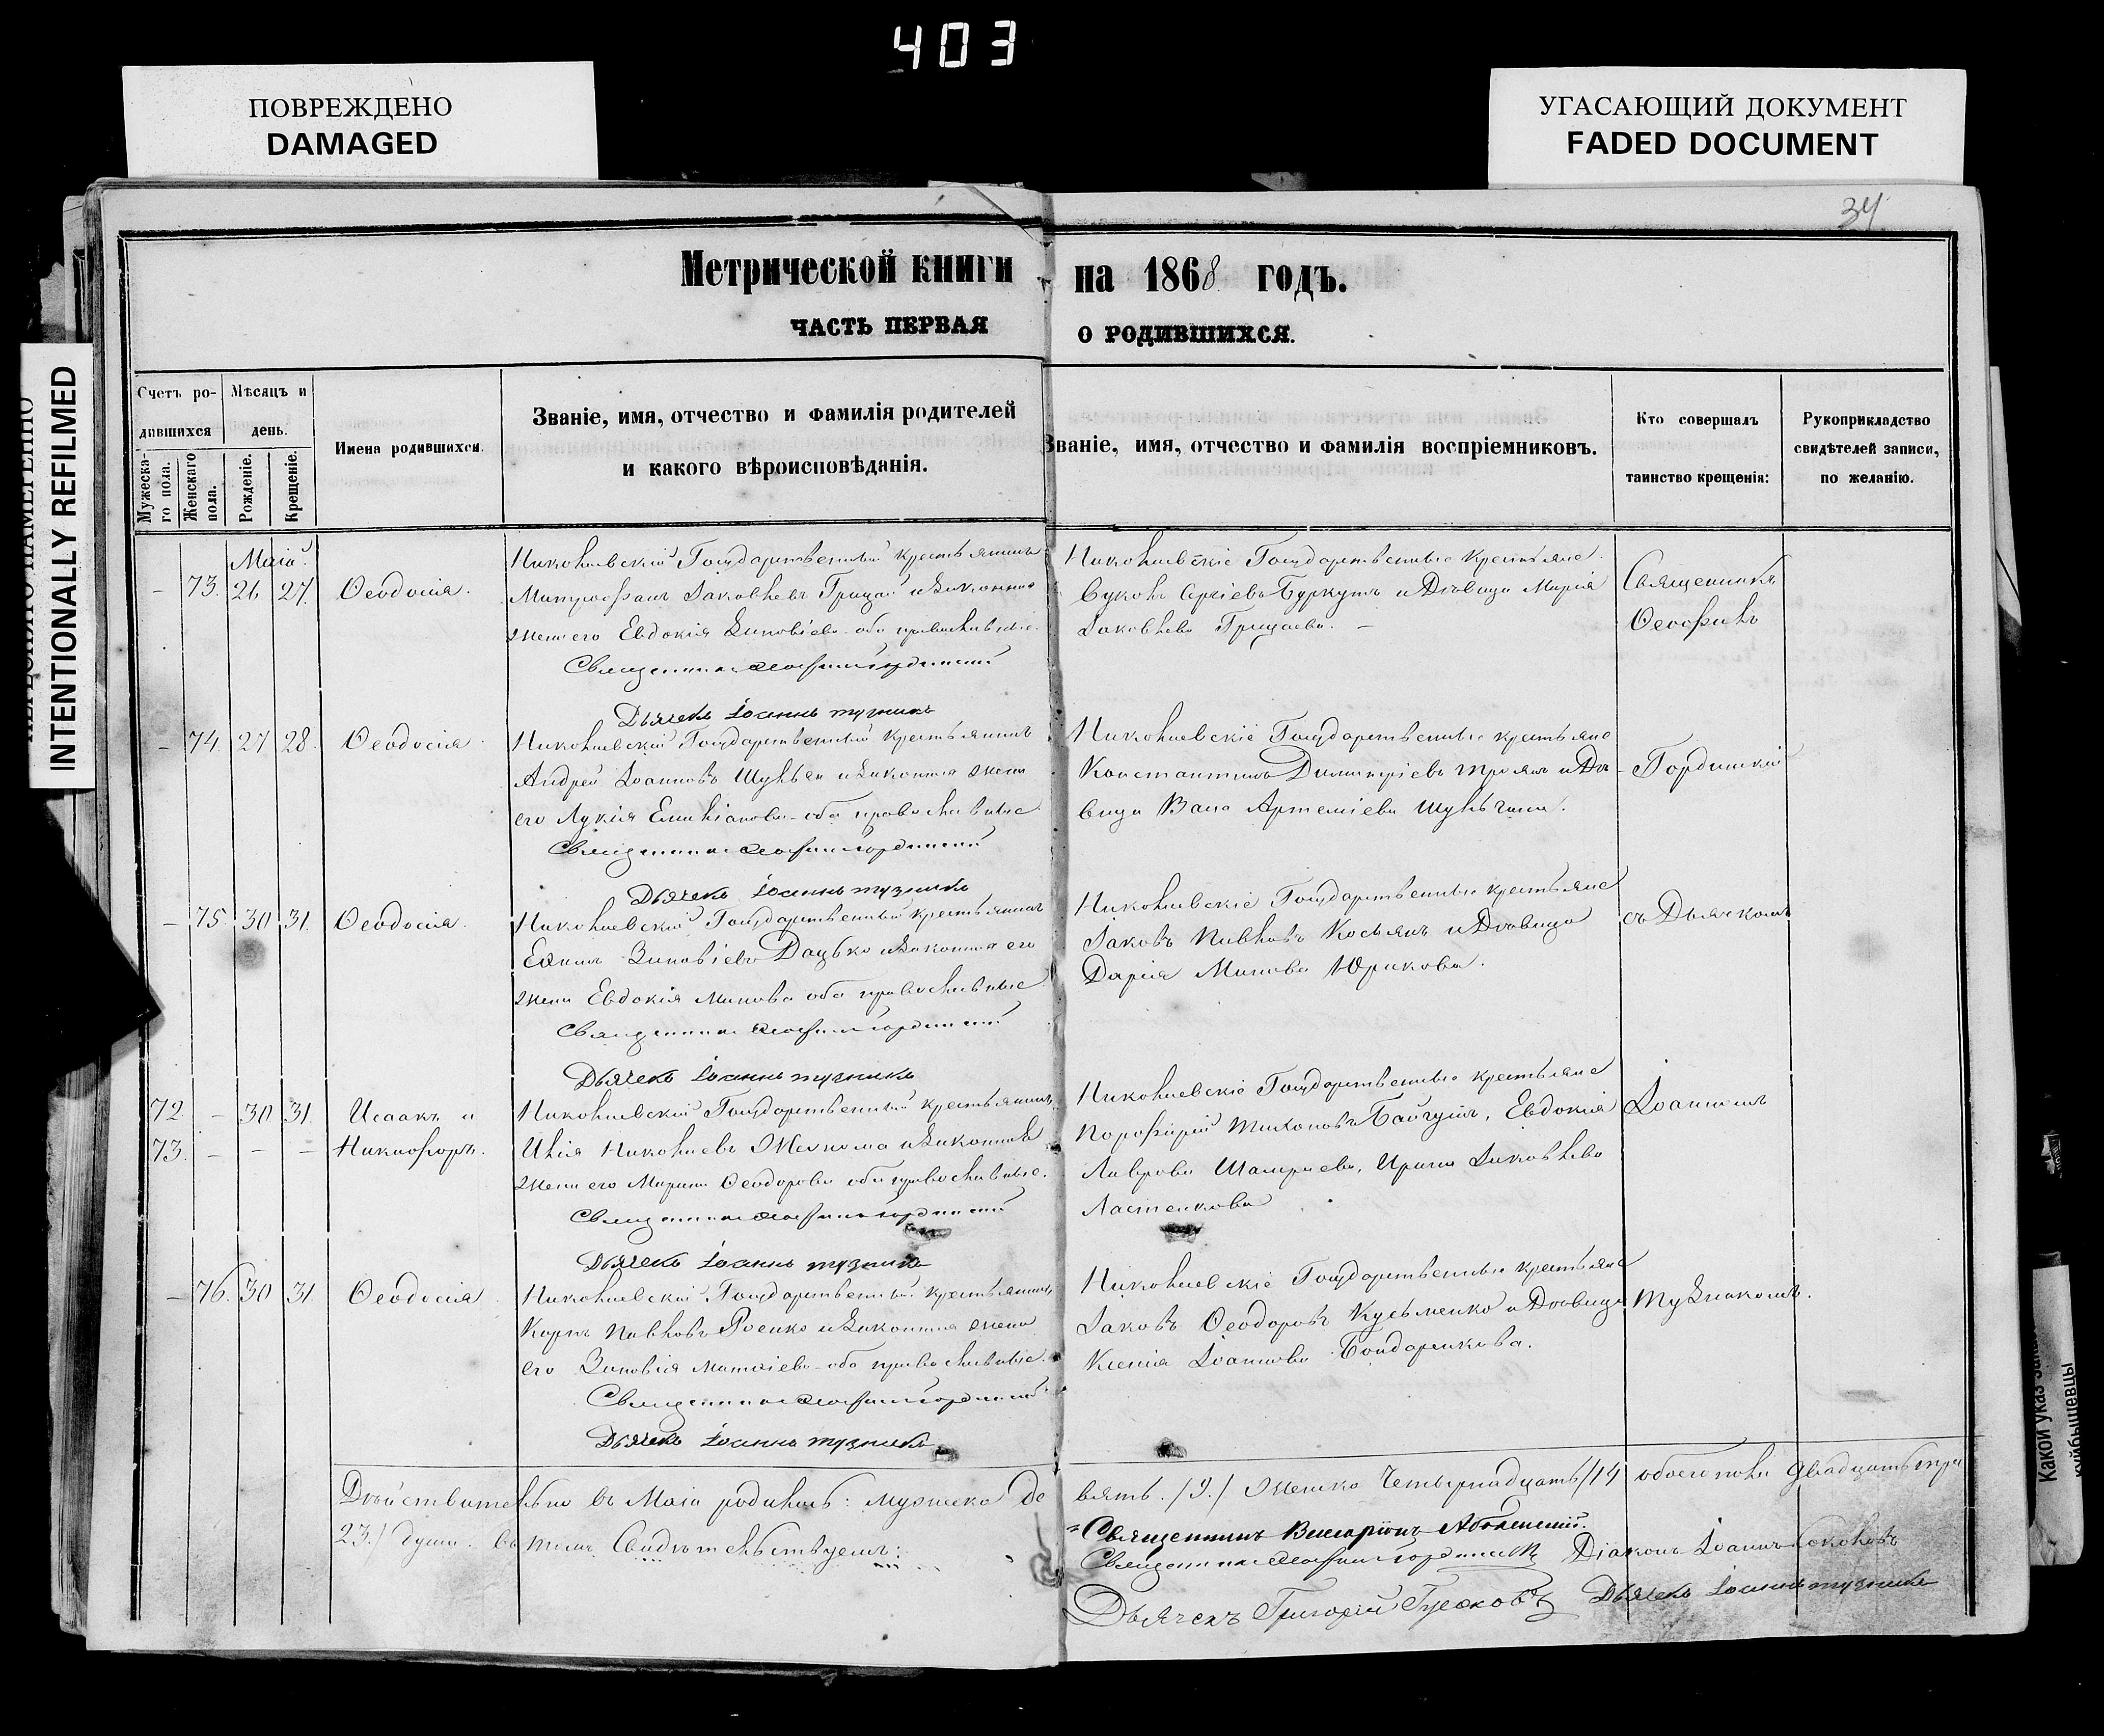 403
ПОВРЕЖДЕНО
DAMAGED
УГАСАЮЩИЙ ДОКУМЕНТ
FADED DOCUMENT
INTENTIONALLY REFILMED
34
Метрической книги на 1868 годъ.
ЧАСТЬ ПЕРВАЯ О РОДИВШИХСЯ.
Счетъ ро-
дившихся
Мужеска-
го пола.
Женскаго
пола.
Мѣсяцъ и
день.
Рожденіе.
Крещеніе.
Имена родившихся.
Званіе, имя, отчество и фамилія родителей
и какого вѣроисповѣданія.
Званіе, имя, отчество и фамилія воспріемниковъ.
Кто совершалъ
таинство крещенія:
Рукоприкладство
свидѣтелей записи,
по желанію.
Маія
- 73. 26 27. Ѳеодосія.
Николаевскій Государственный крестьянинъ
Іаковлевъ Грицай и законная
жена его Евдокія Зиновіева оба православные.
Священникъ Ѳеофилъ Гординскій
Дьячекъ Іоаннъ Тузнакъ
Николаевскіе Государственные крестьяне
Сергіевъ Буркутъ и Дѣвица Марія
Іаковлева Грицаева. -
Священникъ
Ѳеофилъ
- 74. 27 28. Ѳеодосія
Николаевскій Государственный крестьянинъ
Андрей Іоанновъ Шульга и законная жена
его Лукія Емиліанова оба православные
Священникъ Ѳеофилъ Гординскій
Дьячекъ Іоаннъ Тузнакъ
Николаевскіе Государственные крестьяне
Константинъ Димитріевъ Троянъ и Дѣ-
вица Артеміева Шульгина.
Гординскій
- 75. 30 31. Ѳеодосія.
Николаевскій Государственный крестьянинъ
Зиновіевъ Дацько и законная его
жена Евдокія Минова оба православные
Священникъ Ѳеофилъ Гординскій
Дьячекъ Іоаннъ Тузнакъ
Николаевскіе Государственные крестьяне
Іаковъ Павловъ Косьянъ и Дѣвица
Дарія Минова Юрикова.
съ Дьячкомъ
72 - 30 31. Исаакъ и
73. - - - Никифоръ.
Николаевскій Государственный крестьянинъ
Илія Николаевъ и законная
жена его Марина Ѳеодорова оба православные.
Священникъ Ѳеофилъ Гординскій
Дьячекъ Іоаннъ Тузнакъ
Николаевскіе Государственные крестьяне
Порфирій Тихоновъ Байгушъ, Евдокія
Лаврова Шамраева, Ирина Іаковлева
Ластенкова
Іоанномъ
- 76. 30 31 Ѳеодосія
Николаевскій Государственный крестьянинъ
Карпъ Павловъ Роенко и законная жена
его Зиновія Матѳіева оба православные.
Священникъ Ѳеофилъ Гординскій
Дьячекъ Іоаннъ Тузнакъ
Николаевскіе Государственные крестьяне
Іаковъ Ѳеодоровъ Кузьменко и Дѣвица
Ксенія Іоаннова Бондаренкова.
Тузнакомъ.
Дѣйствительно въ Маіи родилось: мужеска де
вять. /9./ Женска Четырнадцать /14 обоего пола двадцать три
23./ душъ. въ томъ Свидѣтельствуемъ:
Священникъ Виссаріонъ
Священникъ Ѳеофилъ Гординскій Діаконъ Іоаннъ Соколовъ
Дьячекъ Григорій Гусаковъ Дьячекъ Іоаннъ Тузнакъ